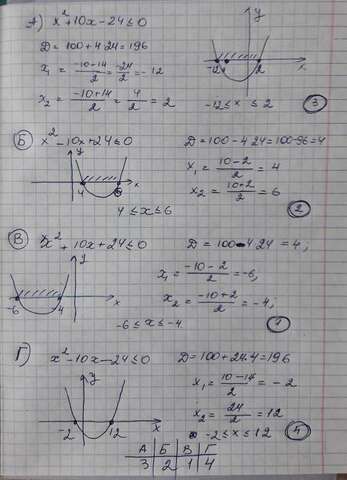 А) x²+10x-24≤0
D=100+4·24=196
x₁=(-10-14)/2=-24/2=-12
x₂=(-10+14)/2=4/2=2
y
x
-12
2
-12≤x≤2
③
Б) x²-10x+24≤0
D=100-4·24=100-96=4
x₁=(10-2)/2=4
x₂=(10+2)/2=6
y
x
4
6
4≤x≤6
②
В) x²+10x+24≤0
D=100-4·24=4,
x₁=(-10-2)/2=-6,
x₂=(-10+2)/2=-4,
y
x
-6
-4
-6≤x≤-4
①
Г) x²-10x-24≤0
D=100+24·4=196
x₁=(10-14)/2=-2
x₂=24/2=12
y
x
-2
12
-2≤x≤12
④
А Б В Г
3 2 1 4